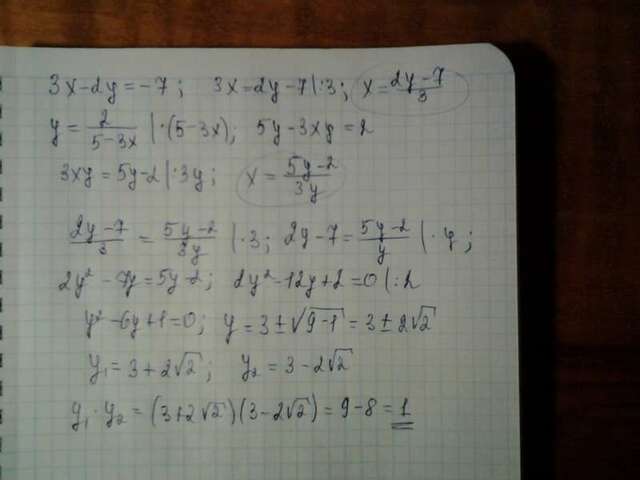 3x-2y=-7; 3x=2y-7|:3; x=(2y-7)/3
y=2/(5-3x) |·(5-3x); 5y-3xy=2
3xy=5y-2|:3y; x=(5y-2)/3y
(2y-7)/3 = (5y-2)/3y |·3; 2y-7=(5y-2)/y |·y;
2y²-7y=5y-2; 2y²-12y+2=0|:2
y²-6y+1=0; y=3±√(9-1)=3±2√2
y₁=3+2√2; y₂=3-2√2
y₁·y₂=(3+2√2)(3-2√2)=9-8=1